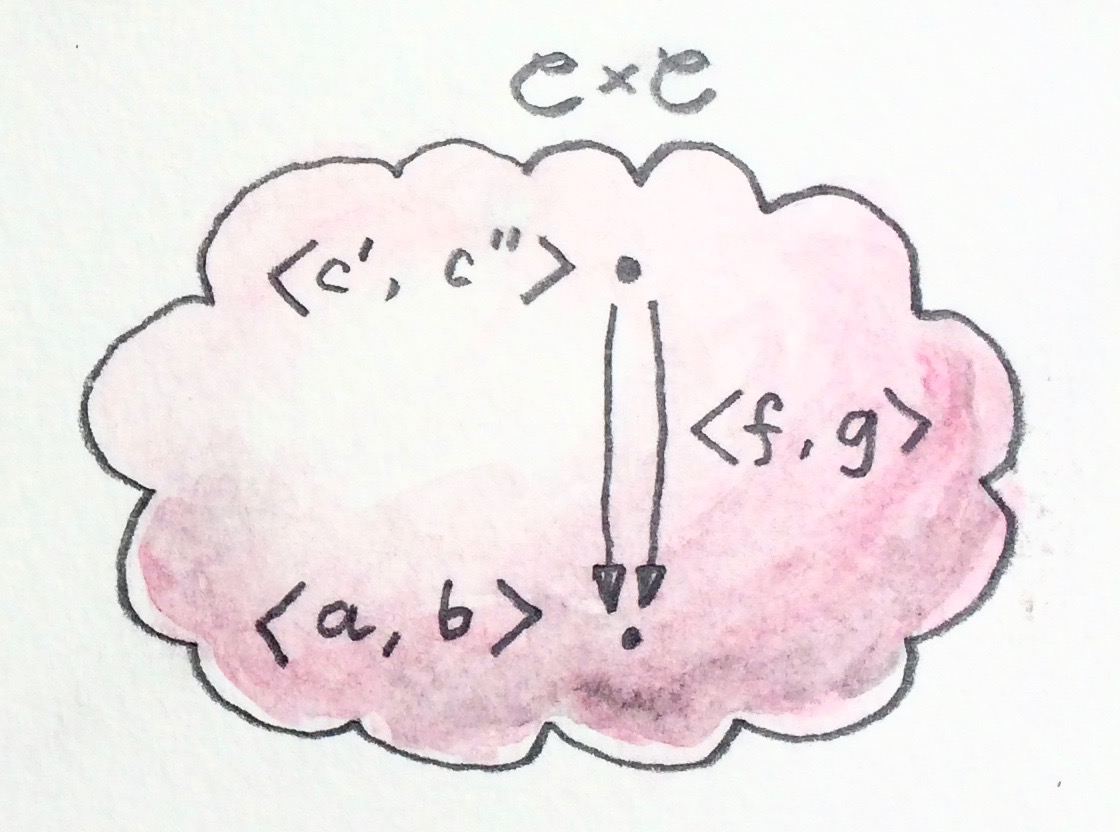 C×C
<c', c">
<f, g>
<a, b>